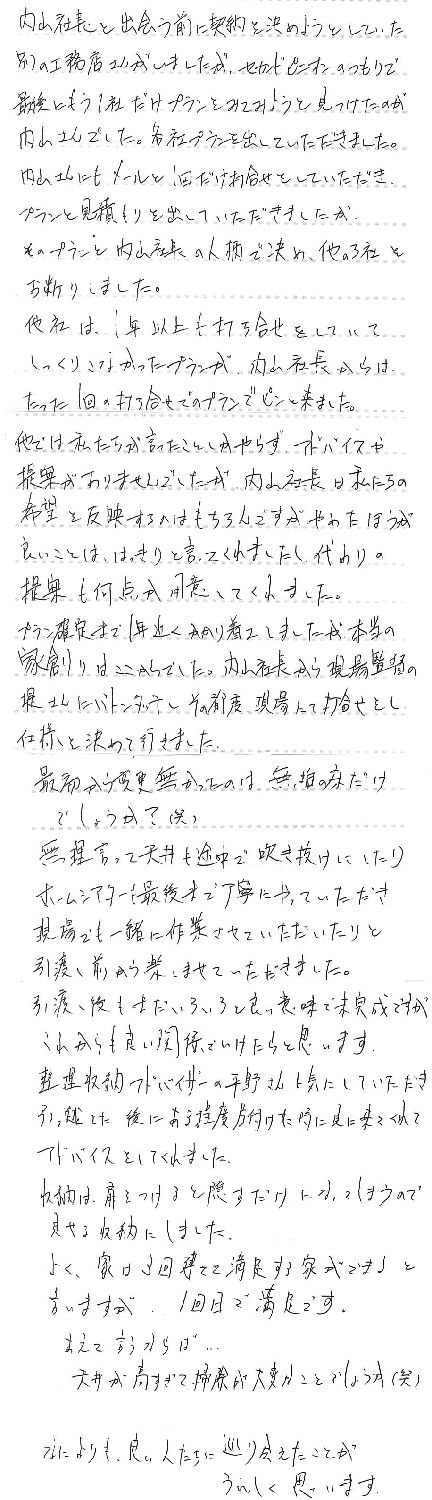 内山社長と出会う前に契約を決めようとしていた
別の工務店さんがいましたが、セカンドオピニオンのつもりで
最後にもう1社だけプランをみてみようと見つけたのが
内山さんでした。各社プランを出していただきました。
内山さんにもメールと1回だけ打合せをしていただき、
プランと見積もりを出していただきましたが、
そのプランと内山社長の人柄で決め、他の3社を
お断りしました。
他社は、1年以上も打ち合せをしていて
しっくりこなかったプランが、内山社長からは
たった1回の打ち合せでのプランでピンと来ました。
他では私たちが言ったことしかやらず、アドバイスや
提案がありませんでしたが、内山社長は私たちの
希望を反映するのはもちろんですがやめたほうが
良いことは、はっきりと言ってくれましたし、代わりの
提案も何点か用意してくれました。
プラン確定まで1年近くかかり着工しましたが本当の
家創りはここからでした。内山社長から現場監督の
堤さんにバトンタッチし、その都度、現場にて打合せをし
仕様を決めて行きました。
最初から変更無かったのは無垢の床だけ
でしょうか?(笑)
無理言って天井も途中で吹き抜けにしたり
ホームシアターも最後まで丁寧にやっていただき
現場でも一緒に作業させていただいたりと
引渡し前から楽しませていただきました。
引渡し後もまだいろいろと良い意味で未完成ですが
これからも良い関係でいけたらと思います。
整理収納アドバイザーの平野さんも気にしていただき
引っ越した後にある程度片付けた時に見に来てくれて
アドバイスをしてくれました。
収納は、扉をつけると隠すだけになってしまうので
見せる収納にしました。
よく、家は3回建てて満足する家ができると
言いますが、1回目で満足です。
あえて言うならば…
天井が高すぎて掃除が大変なことでしょうか(笑)
なによりも、良い人たちに巡り会えたことが
うれしく思います。